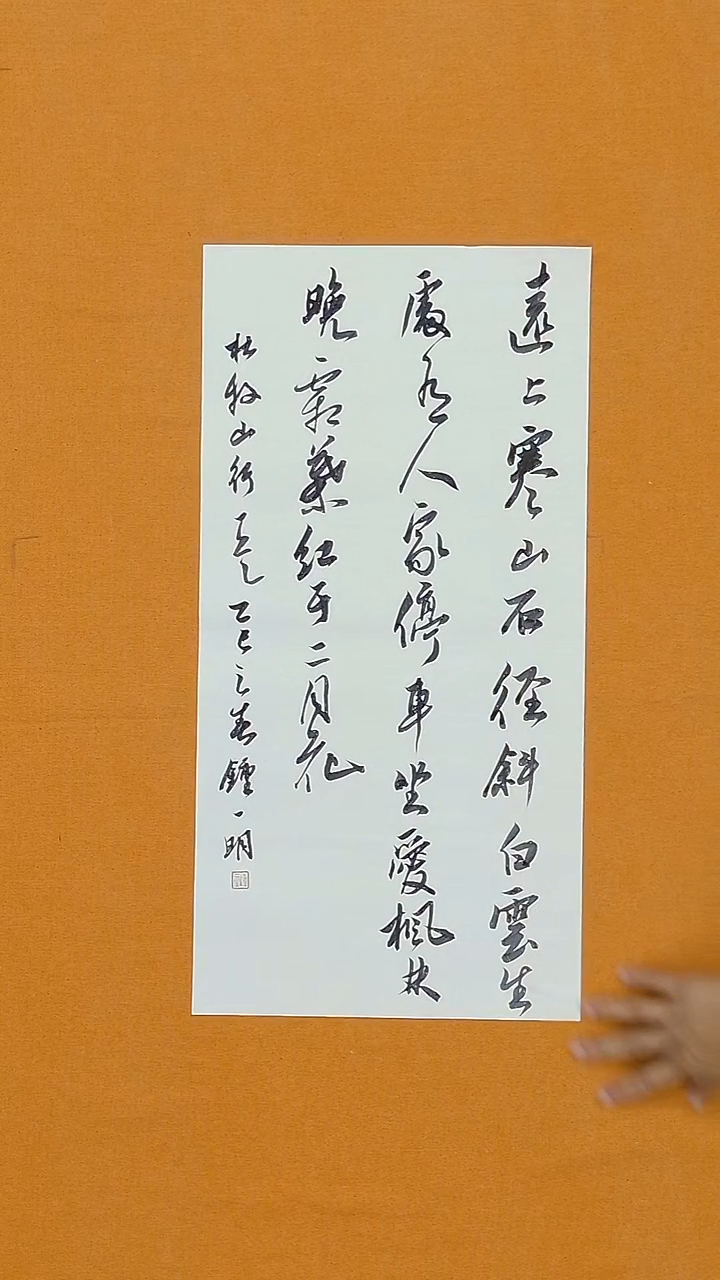 遠上寒山石径斜白雲生
處有人家停車坐愛楓林
晚霜葉紅于二月花
杜牧山行一首乙巳之春鍾一明